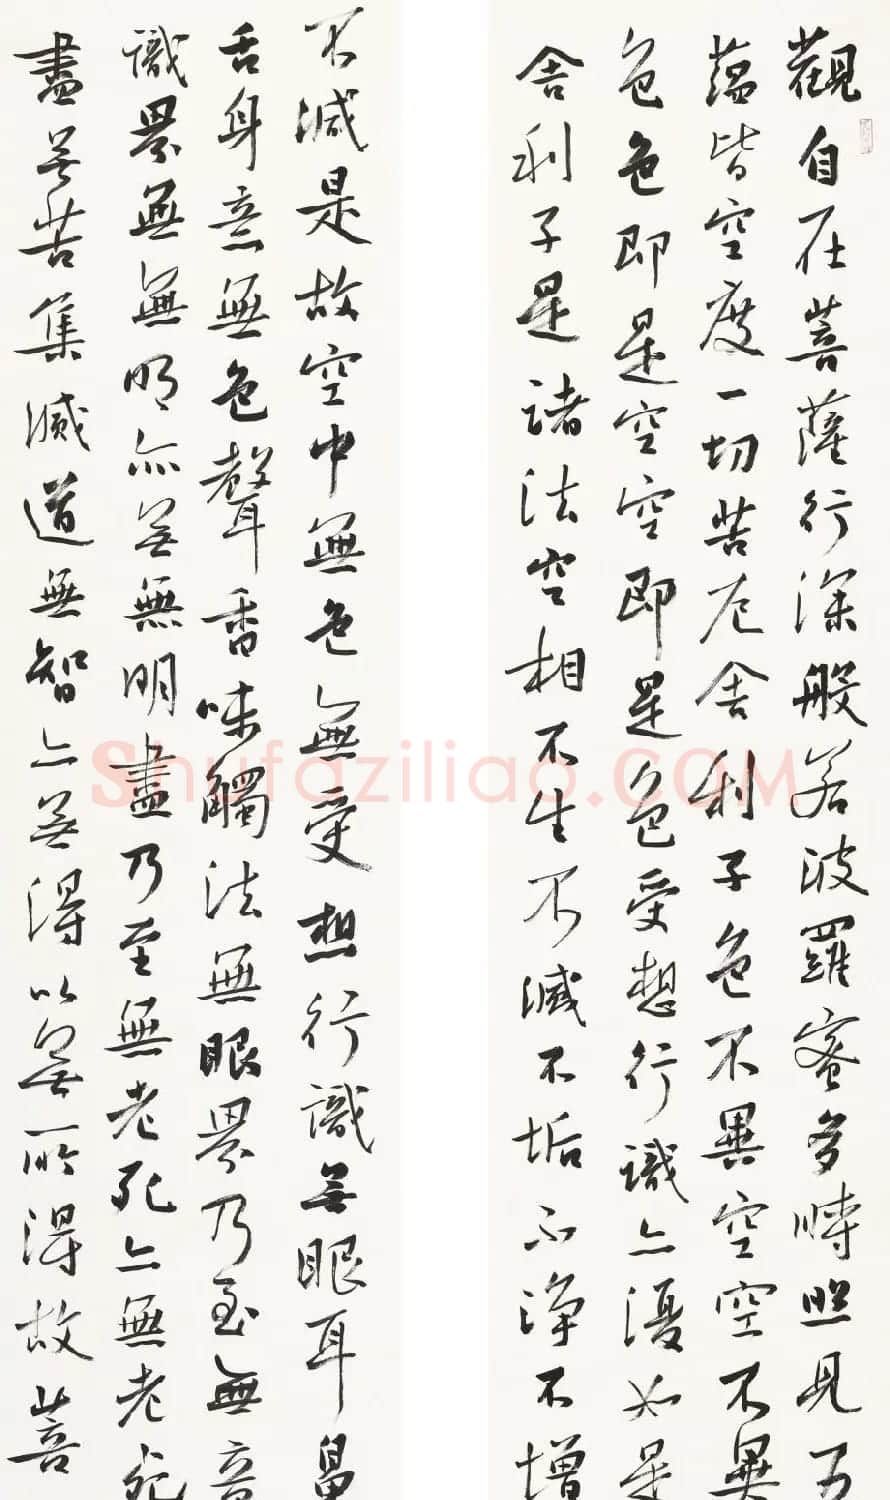 觀自在菩薩行深般若波羅蜜多時照見五
蘊皆空度一切苦厄舍利子色不異空空不異
色色即是空空即是色受想行識亦復如是
舍利子是諸法空相不生不滅不垢不淨不增
不減是故空中無色無受想行識無眼耳鼻
舌身意無色聲香味觸法無眼界乃至無意
識界無無明亦無無明盡乃至無老死亦無老死
盡無苦集滅道無智亦無得以無所得故菩
Shufaziliao.COM